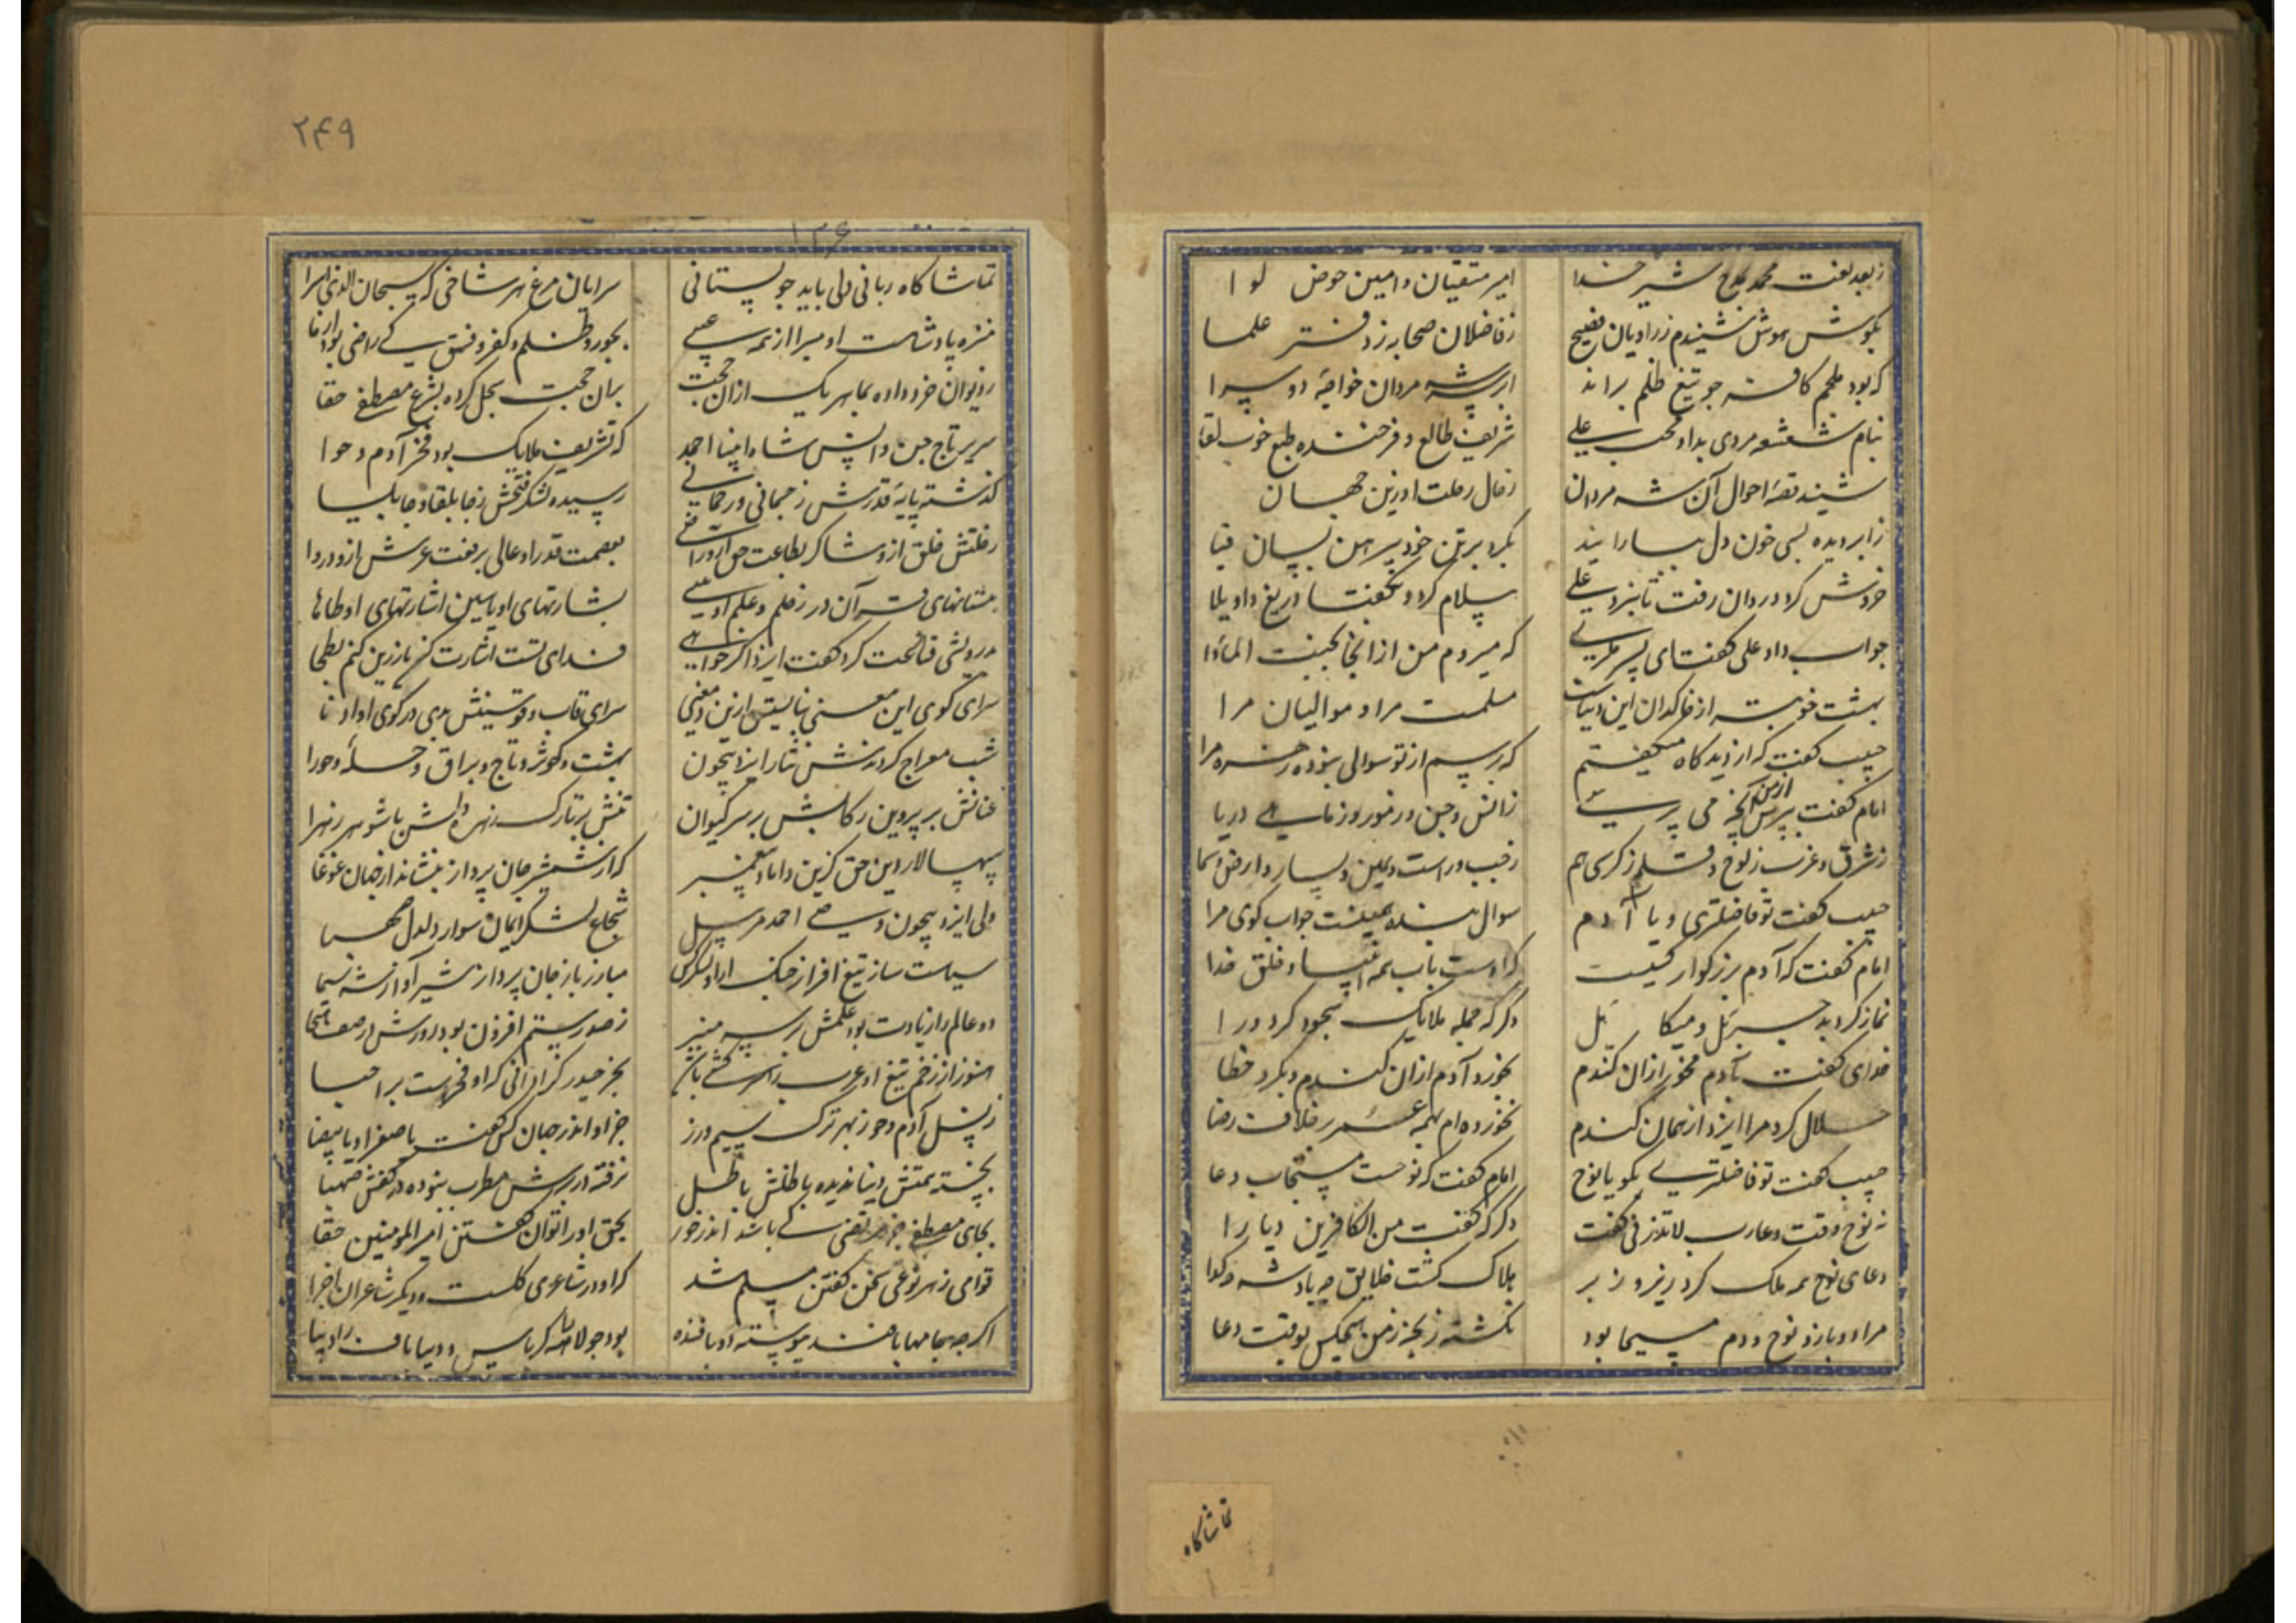 زبعد نعت محمد مدح شیر خدا
امیر متقیان و امین حوض لوا
بکوش هوش شنیدم ز راویان فصیح
ز فاضلان صحابه ز دفتر علما
که بود ملحم کافر چو تیغ ظلم براند
ابر شه مردان خواجهٔ دو سرا
بنام شعشعه مردی بداد محب علی
شریف طالع و فرخنده طبع خوب لقا
شنید قصهٔ احوال آن شه مردان
ز حال رحلت او زین جهان
ز آب دیده بسی خون دل بسارا بید
بکرد بر تن خود پیرهن بسان قبا
خروش کرد و روان رفت تا بنزد علی
سلام کرد و بگفتا دریغ و اویلا
جواب داد علی گفت ای پسر مگری
که میروم من از اینجا بجنت الماوا
بهشت خوبتر از خاکدان این دنیاست
مسلمست مرا و موالیان مرا
حبیب گفت که از دیدگاه میگفتم
که پرسم از تو سوالی نبوده زهره مرا
امام گفت بپرس از من آنچه می پرسی
ز انس و جن و ز مور و ز ماهی دریا
ز شرق و غرب ز لوح و قلم ز کرسی هم
ز جیب و راست یمین و یسار و ارض و سما
حبیب گفت تو فاضلتری و یا آدم
سوال بنده همینست جواب گوی مرا
امام گفت که آدم بزرگوار کسیست
که اوست باب همه انبیا و خلق خدا
نماز کرد بدو جبرئل و میکائل
دگر که جمله ملایک سجود کرد ورا
خدای گفت بآدم مخور از آن گندم
بخورد آدم از آن گندم و بکرد خطا
حلال کرد مرا ایزد از همان گندم
نخورده ام همه عمر بر خلافت رضا
حبیب گفت تو فاضلتری بگو یا نوح
امام گفت که نوحست مستجاب دعا
نه نوح وقت دعا رب لا تذرنی گفت
دگر که گفت من الکافرین دیارا
دعای نوح همه ملک کرد زیر و زبر
هلاک گشت خلایق چه پادشه و گدا
مرا دو بازو نوح و دم مسیحا بود
نکشته رنجه ز من هیچکس بوقت دعا
تماشاکاه
۲۴۹
۱۳۶
تماشا کاه ربانی دلی باید چو بستانی
سرایان مرغ هر شاخی که سبحان الذی اسرا
منزه پادشاهست او مبرا از همه عیبی
بجور و ظلم و کفر و فسق کی راضی بود از ما
ز دیوان خرد داده بما هر یک از آن حجت
بدان حجت سجل کرده بشرع مصطفی حقا
سریر تاج جن و انس شاه انبیا احمد
که تشریف ملایک بود فخر آدم و حوا
گذشته پایهٔ قدرش ز جسمانی و رحمانی
رسیده لشکر فتحش ز جابلقا و جابلسا
ز خلقش خلق ازو شاکر بطاعت حق او را
بعصمت قدر او عالی برفعت عرش ازو دروا
بشارتهای او یاسین اشارتهای او طاها
بدرویشی قناعت کرد گفت ایزد اگر خواهی
فدای تست اشارت کن تا زرین کنم بطحا
سرای کوی این معنی
سرای قاب و قوسینش بدی در کوی او ادنا
شب معراج کردندش نثار ایزد بیچون
بهشت و کوثر و تاج و براق و حله و حورا
عنانش بر پروین رکابش بر سر کیوان
سپهسالار دین حق گزین داماد پیغمبر
که از شمشیر جان پرداز بنشاند از جهان غوغا
ولی ایزد بیچون وصی احمد مرسل
شجاع لشکر ایمان سوار دلدل شهبا
سیاست ساز تیغ افراز جنگ
مبارز باز جان پرداز شیر آواز شه سیما
دو عالم را زیادت بود علمش
هنوز از زخم تیغ او عرب
بجز حیدر
ز نسل آدم و حوا
جز او اندر جهان کس گفت یا صفرا و یا بیضا
نجسته همتش دنیا ندیده باطلش باطل
نرفته در برش مطرب نبوده در کفش صهبا
بجای مصطفی جز مرتضی کی باشد اندر خور
بحق او را توان گفتن امیر المومنین حقا
قوامی ز هر نوعی سخن گفتن مسلم شد
که او در شاعری کلست و دیگر شاعران اجزا
اگر چه جامها بافند پیوسته دو بافنده
بود جولاهه کرباس و دیبا باف را دیبا